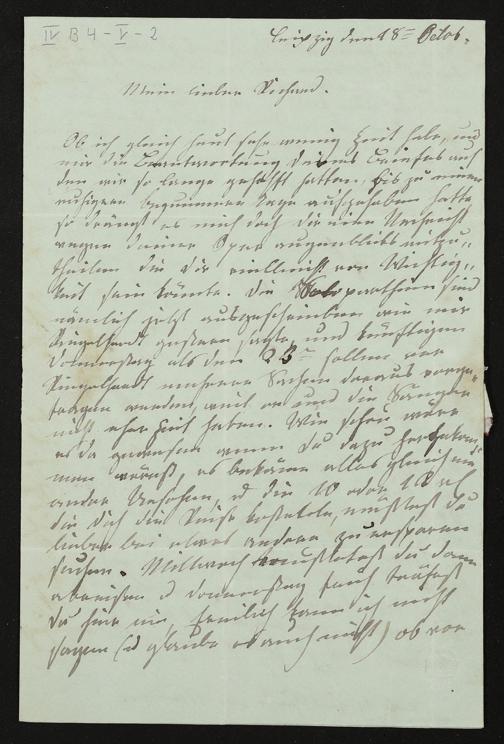 IV B 4 - V - 2
Leipzig den 18= Octob.
Mein lieber Richard.
Ob ich gleich heut sehr wenig Zeit habe, und
mir die Beantwortung deines Briefes auf
den wir so lange gehofft hatten, bis zu einem
ruhigeren Tage aufgehoben hatte
so drängt es mich doch dir eine Nachricht
wegen deiner Oper augenblicklich mitzu„
theilen die dir vielleicht von Wichtig„
keit sein könnte. Die Soloparthien sind
nämlich jetzt ausgeschrieben wie mir
Ringelhardt gestern sagte, und künftigen
Donnerstag als den 23= sollen vor
Ringelhardt mehrere Sachen daraus vorge„
tragen werden, weil er und die Sänger
nicht eher Zeit haben. Wie schön wäre
es da gewesen wenn du dazu
man weiß, es bekäme alles gleich ein
andre Ansehen, u die 10 oder 12 rh
die dich die Reise kostete, müßtest du
lieber bei etwas andern zu ersparen
suchen. Mittwoch müßtest du dann
abreisen u Donnerstag früh träfest
du hier ein, freilich kann ich nicht
sagen (u glaube es auch nicht) ob vor